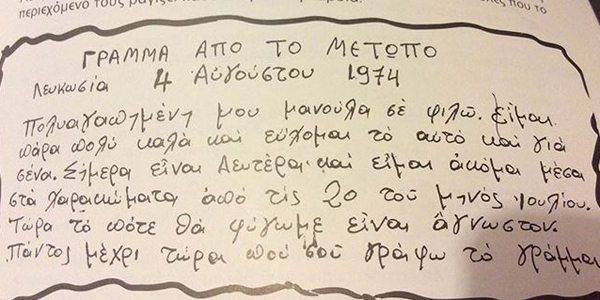 περιεχόμενο τους
που το
ΓΡΑΜΜΑ ΑΠΟ ΤΟ ΜΕΤΩΠΟ
Λευκωσία 4 Αὐγούστου 1974
Πολυαγαπημένη μου μανούλα σὲ φιλῶ. Εἶμαι
πάρα πολύ καλά καὶ εὔχομαι τὸ αὐτὸ καὶ γιὰ
σένα. Σήμερα εἶναι Δευτέρα καὶ εἶμαι ἀκόμα μέσα
στὰ χαρακώματα ἀπὸ τὶς 20 τοῦ μηνός Ιουλίου.
Τώρα τὸ πότε θὰ φύγωμε εἶναι ἄγνωστον.
Πάντος μέχρι τώρα ποὺ σοῦ γράφω τὸ γράμμα